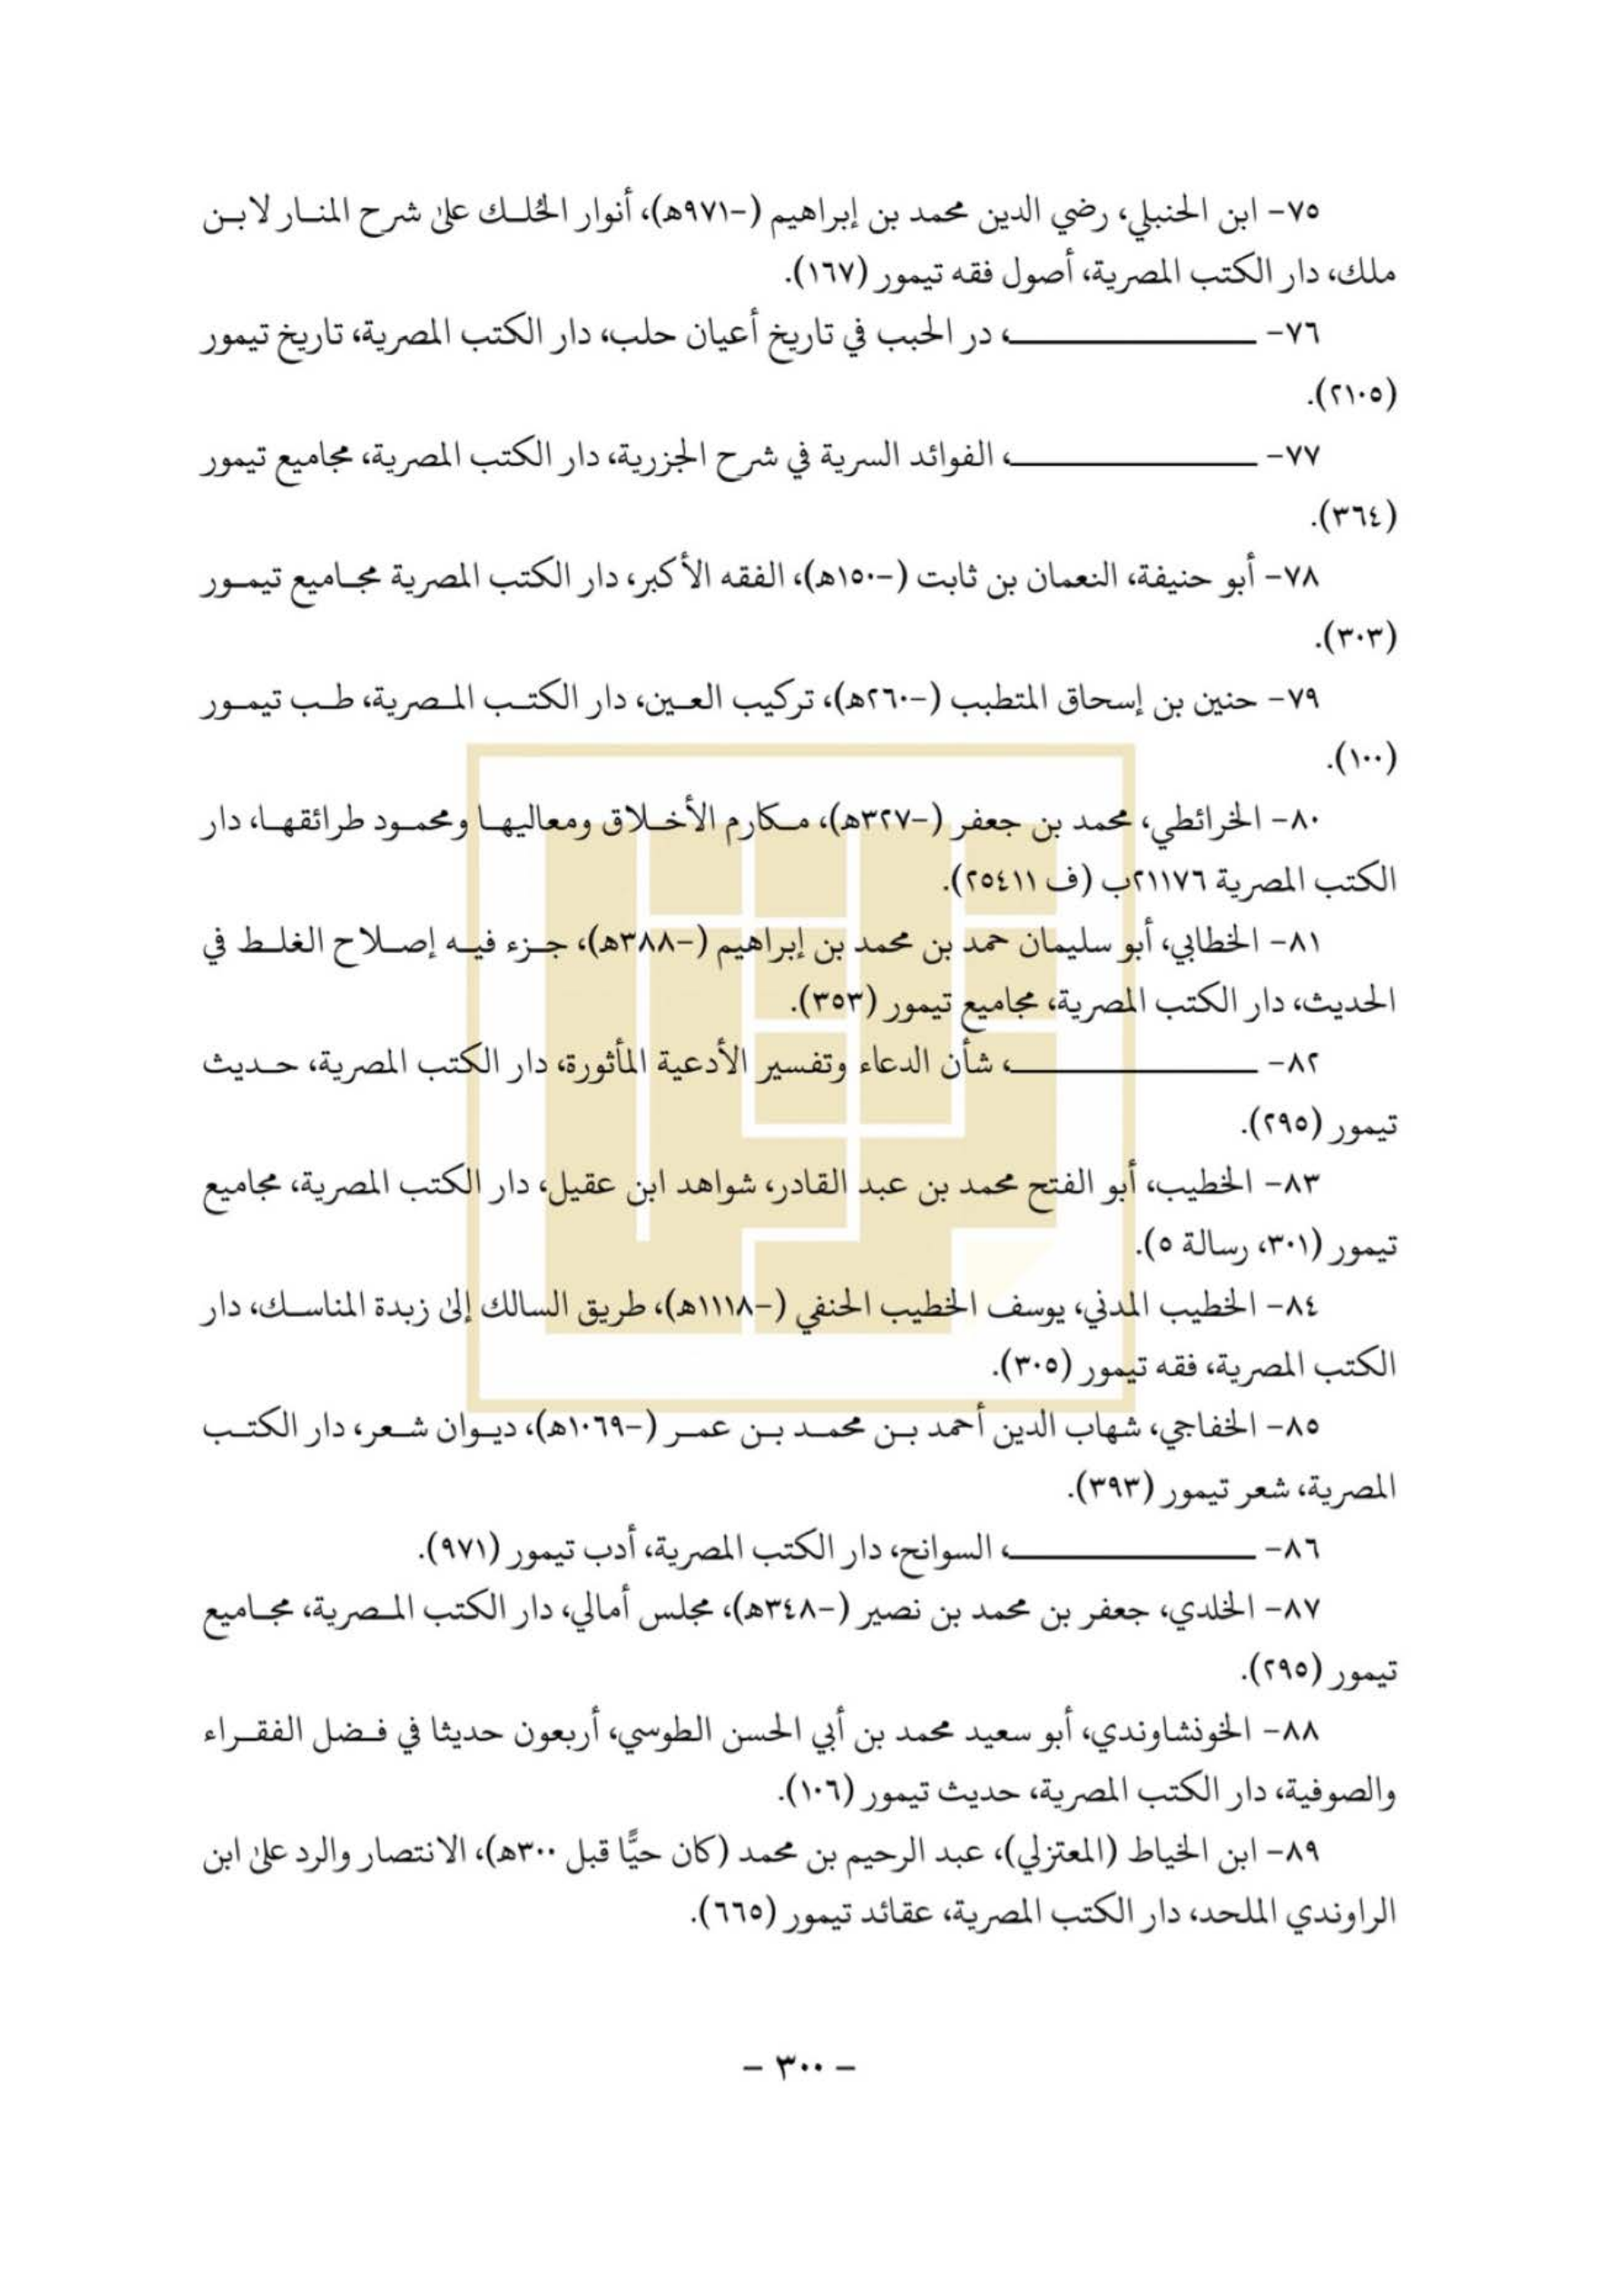 ٧٥- ابن الحنبلي، رضي الدين محمد بن إبراهيم (-٩٧١هـ)، أنوار الحُلك على شرح المنار لابن
ملك، دار الكتب المصرية، أصول فقه تيمور (١٦٧).
٧٦- ــــــــــــــــــــ، در الحبب في تاريخ أعيان حلب، دار الكتب المصرية، تاريخ تيمور
(٢١٠٥).
٧٧- ــــــــــــــــــــ، الفوائد السرية في شرح الجزرية، دار الكتب المصرية، مجاميع تيمور
(٣٦٤).
٧٨- أبو حنيفة، النعمان بن ثابت (-١٥٠هـ)، الفقه الأكبر، دار الكتب المصرية مجاميع تيمور
(٣٠٣).
٧٩- حنين بن إسحاق المتطبب (-٢٦٠هـ)، تركيب العين، دار الكتب المصرية، طب تيمور
(١٠٠).
٨٠- الخرائطي، محمد بن جعفر (-٣٢٧هـ)، مكارم الأخلاق ومعاليها ومحمود طرائقها، دار
الكتب المصرية ٢١١٧٦ب (ف ٢٥٤١١).
٨١- الخطابي، أبو سليمان حمد بن محمد بن إبراهيم (-٣٨٨هـ)، جزء فيه إصلاح الغلط في
الحديث، دار الكتب المصرية، مجاميع تيمور (٣٥٣).
٨٢- ــــــــــــــــــــ، شأن الدعاء وتفسير الأدعية المأثورة، دار الكتب المصرية، حديث
تيمور (٢٩٥).
٨٣- الخطيب، أبو الفتح محمد بن عبد القادر، شواهد ابن عقيل، دار الكتب المصرية، مجاميع
تيمور (٣٠١، رسالة ٥).
٨٤- الخطيب المدني، يوسف الخطيب الحنفي (-١١١٨هـ)، طريق السالك إلى زبدة المناسك، دار
الكتب المصرية، فقه تيمور (٣٠٥).
٨٥- الخفاجي، شهاب الدين أحمد بن محمد بن عمر (-١٠٦٩هـ)، ديوان شعر، دار الكتب
المصرية، شعر تيمور (٣٩٣).
٨٦- ــــــــــــــــــــ، السوانح، دار الكتب المصرية، أدب تيمور (٩٧١).
٨٧- الخلدي، جعفر بن محمد بن نصير (-٣٤٨هـ)، مجلس أمالي، دار الكتب المصرية، مجاميع
تيمور (٢٩٥).
٨٨- الخونشاوندي، أبو سعيد محمد بن أبي الحسن الطوسي، أربعون حديثا في فضل الفقراء
والصوفية، دار الكتب المصرية، حديث تيمور (١٠٦).
٨٩- ابن الخياط (المعتزلي)، عبد الرحيم بن محمد (كان حيًّا قبل ٣٠٠هـ)، الانتصار والرد على ابن
الراوندي الملحد، دار الكتب المصرية، عقائد تيمور (٦٦٥).
– ٣٠٠ –